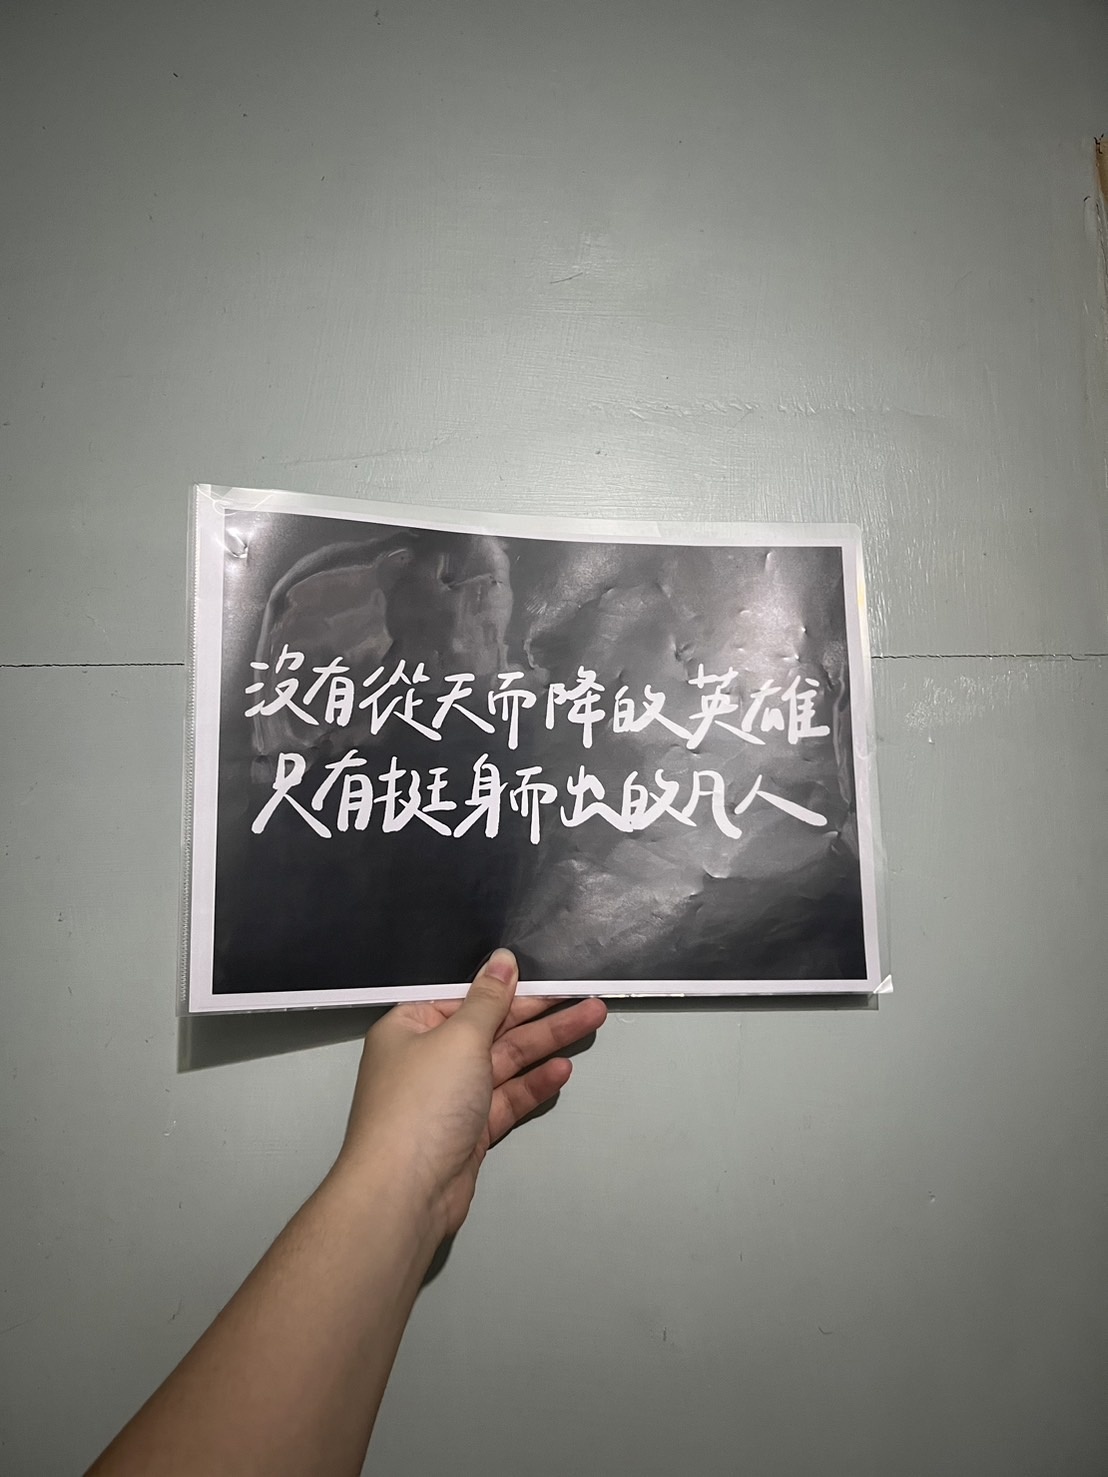 沒有從天而降的英雄
只有挺身而出的凡人